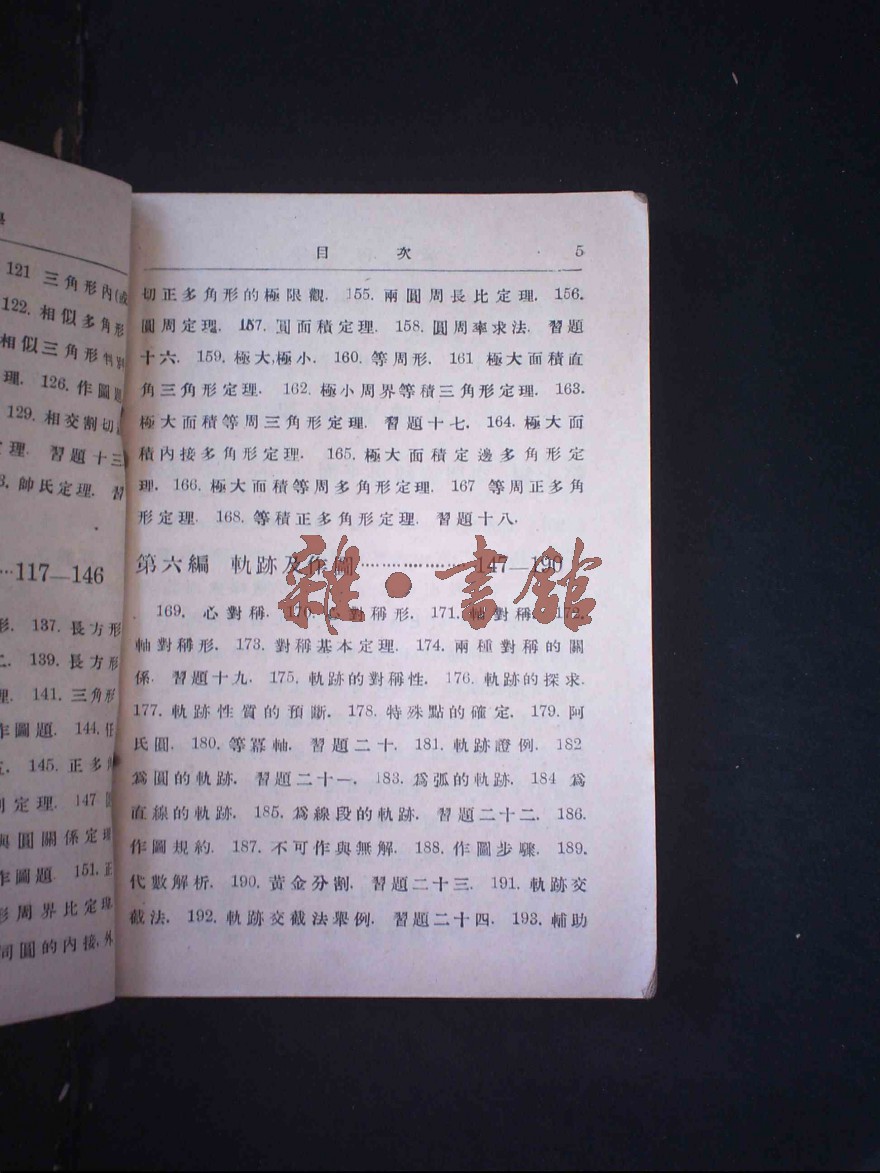 121 三角形內(或
122. 相似多角形
相似三角形判別
理. 126. 作圖題
129. 相交割切
理. 習題十三
帥氏定理. 習
···117—146
形. 137. 長方形
139. 長方形
理. 141. 三角形
作圖題. 144. 任
145. 正多
定理. 147 圓
與圓關係定理
作圖題. 151. 正
形周界比定理
同圓的內接,外
目 次 5
切正多角形的極限觀. 155. 兩圓周長比定理. 156.
圓周定理. 157. 圓面積定理. 158. 圓周率求法. 習題
十六. 159. 極大,極小. 160. 等周形. 161 極大面積直
角三角形定理. 162. 極小周界等積三角形定理. 163.
極大面積等周三角形定理. 習題十七. 164. 極大面
積內接多角形定理. 165. 極大面積定邊多角形定
理. 166. 極大面積等周多角形定理. 167 等周正多角
形定理. 168. 等積正多角形定理. 習題十八.
第六編 軌跡及作圖··················147—190
169. 心對稱. 170. 心對稱形. 171. 軸對稱. 172.
軸對稱形. 173. 對稱基本定理. 174. 兩種對稱的關
係. 習題十九. 175. 軌跡的對稱性. 176. 軌跡的探求.
177. 軌跡性質的預斷. 178. 特殊點的確定. 179. 阿
氏圓. 180. 等冪軸. 習題二十. 181. 軌跡證例. 182
爲圓的軌跡. 習題二十一. 183. 爲弧的軌跡. 184 爲
直線的軌跡. 185. 爲線段的軌跡. 習題二十二. 186.
作圖規約. 187. 不可作與無解. 188. 作圖步驟. 189.
代數解析. 190. 黃金分割. 習題二十三. 191. 軌跡交
截法. 192. 軌跡交截法舉例. 習題二十四. 193. 輔助
雜·書館